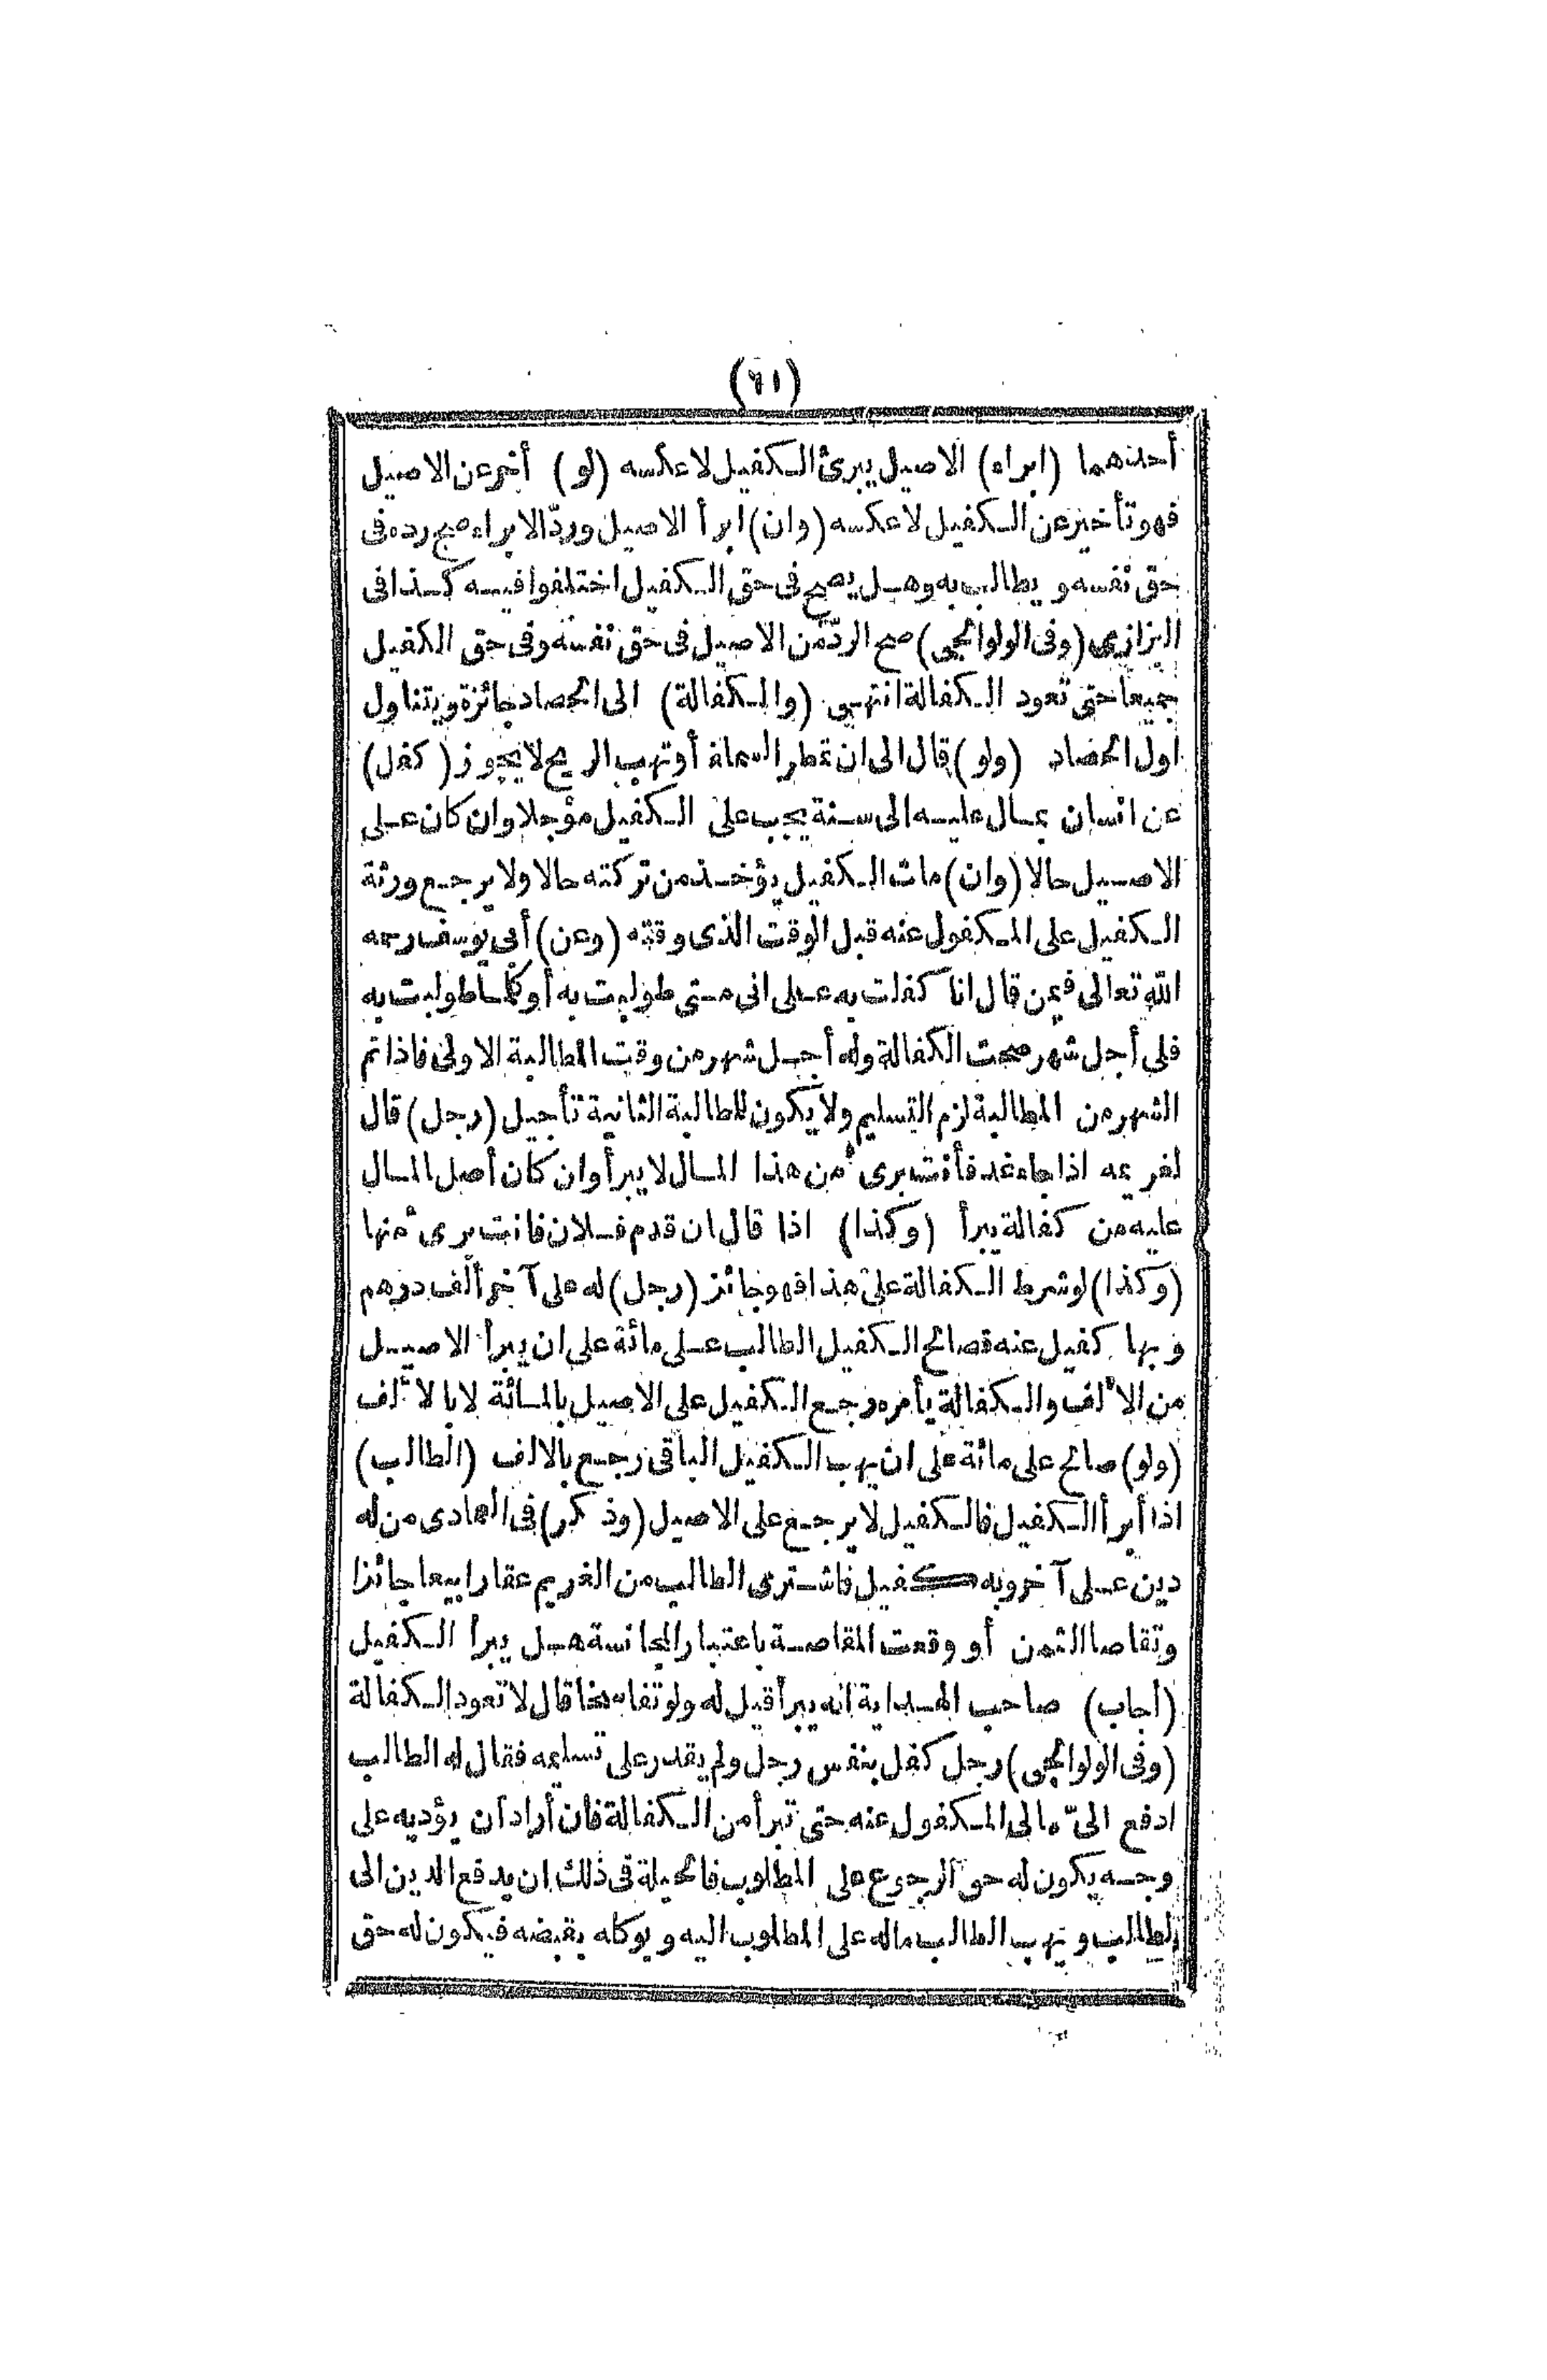 (٦١)
أحدهما (ابراء) الاصيل يبرئ الكفيل لا عكسه (لو) أخر عن الاصيل
فهو تأخير عن الكفيل لا عكسه (وان) ابرأ الاصيل وردّ الابراء صح رده فى
حق نفسه ويطالب به وهل يصح فى حق الكفيل اختلفوا فيه كذا فى
البزازى (وفى الولوالجى) صح الردّ من الاصيل فى حق نفسه وفى حق الكفيل
جميعا حتى تعود الكفالة انتهى (والكفالة) الى الحصاد جائزة ويتناول
اول الحصاد (ولو) قال الى ان تمطر السماء أو تهب الريح لا يجوز (كفل)
عن انسان بمال عليه الى سنة يجب على الكفيل مؤجلا وان كان على
الاصيل حالا (وان) مات الكفيل يؤخذ من تركته حالا ولا يرجع ورثة
الكفيل على المكفول عنه قبل الوقت الذى وقته (وعن) أبى يوسف رحمه
الله تعالى فيمن قال انا كفلت به على انى متى طولبت به أو كلما طولبت به
فلى أجل شهر صحت الكفالة وله أجل شهر من وقت المطالبة الاولى فاذا تم
الشهر من المطالبة لزم التسليم ولا يكون للطالبة الثانية تأجيل (رجل) قال
لغريمه اذا جاء غد فأنت برىء من هذا المال لا يبرأ وان كان أصل المال
عليه من كفالة يبرأ (وكذا) اذا قال ان قدم فلان فانت برىء منها
(وكذا) لو شرط الكفالة على هذا فهو جائز (رجل) له على آخر ألف درهم
وبها كفيل عنه فصالح الكفيل الطالب على مائة على ان يبرأ الاصيل
من الألف والكفالة بأمره رجع الكفيل على الاصيل بالمائة لا بالألف
(ولو) صالح على مائة على ان يهب الكفيل الباقى رجع بالالف (الطالب)
اذا أبرأ الكفيل فالكفيل لا يرجع على الاصيل (وذكر) فى العمادى من له
دين على آخر وبه كفيل فاشترى الطالب من الغريم عقارا بيعا جائزا
وتقاصا الثمن أو وقعت المقاصة باعتبار المجانسة هل يبرأ الكفيل
(أجاب) صاحب الهداية انه يبرأ قيل له ولو تفاسخا قال لا تعود الكفالة
(وفى الولوالجى) رجل كفل بنفس رجل ولم يقدر على تسليمه فقال له الطالب
ادفع الىّ مالى المكفول عنه حتى تبرأ من الكفالة فان أراد ان يؤديه على
وجه يكون له حق الرجوع على المطلوب فالحيلة فى ذلك ان يدفع الدين الى
الطالب ويهب الطالب ماله على المطلوب اليه ويوكله بقبضه فيكون له حق